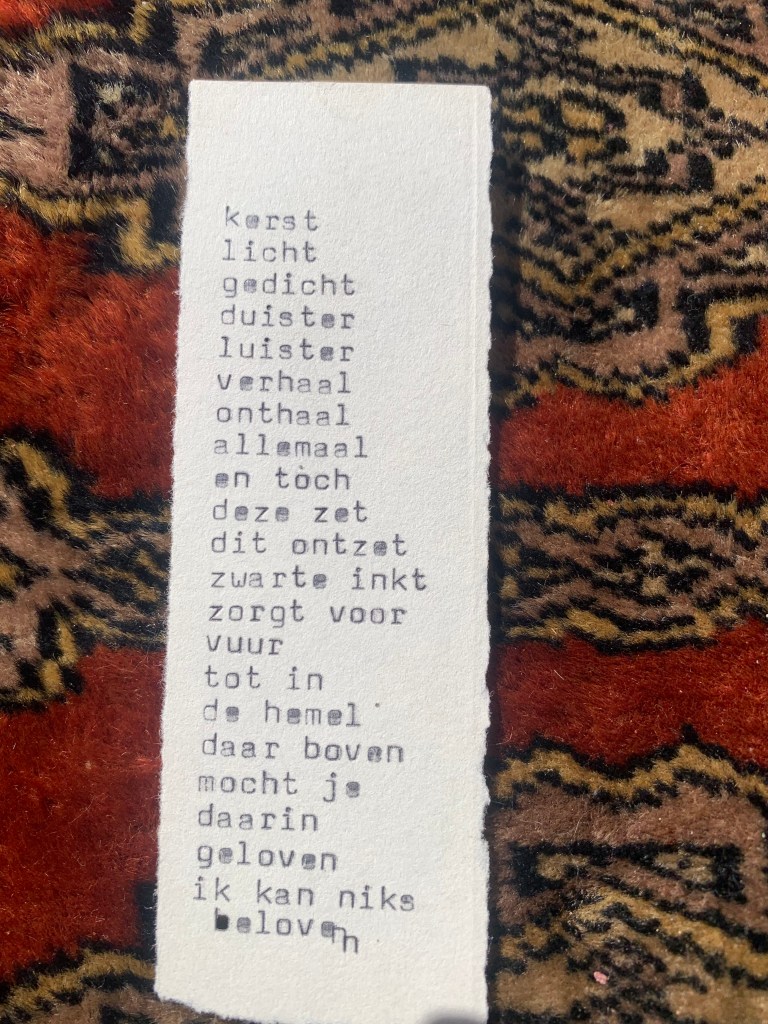 kerst
licht
gedicht
duister
luister
verhaal
onthaal
allemaal
en tòch
deze zet
dit ontzet
zwarte inkt
zorgt voor
vuur
tot in
de hemel
daar boven
mocht je
daarin
geloven
ik kan niks
beloven